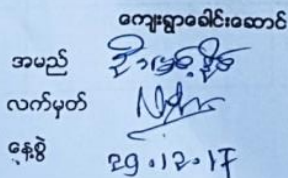 ကျေးရွာခေါင်းဆောင်
အမည်
လက်မှတ်
နေ့စွဲ 29.12.17